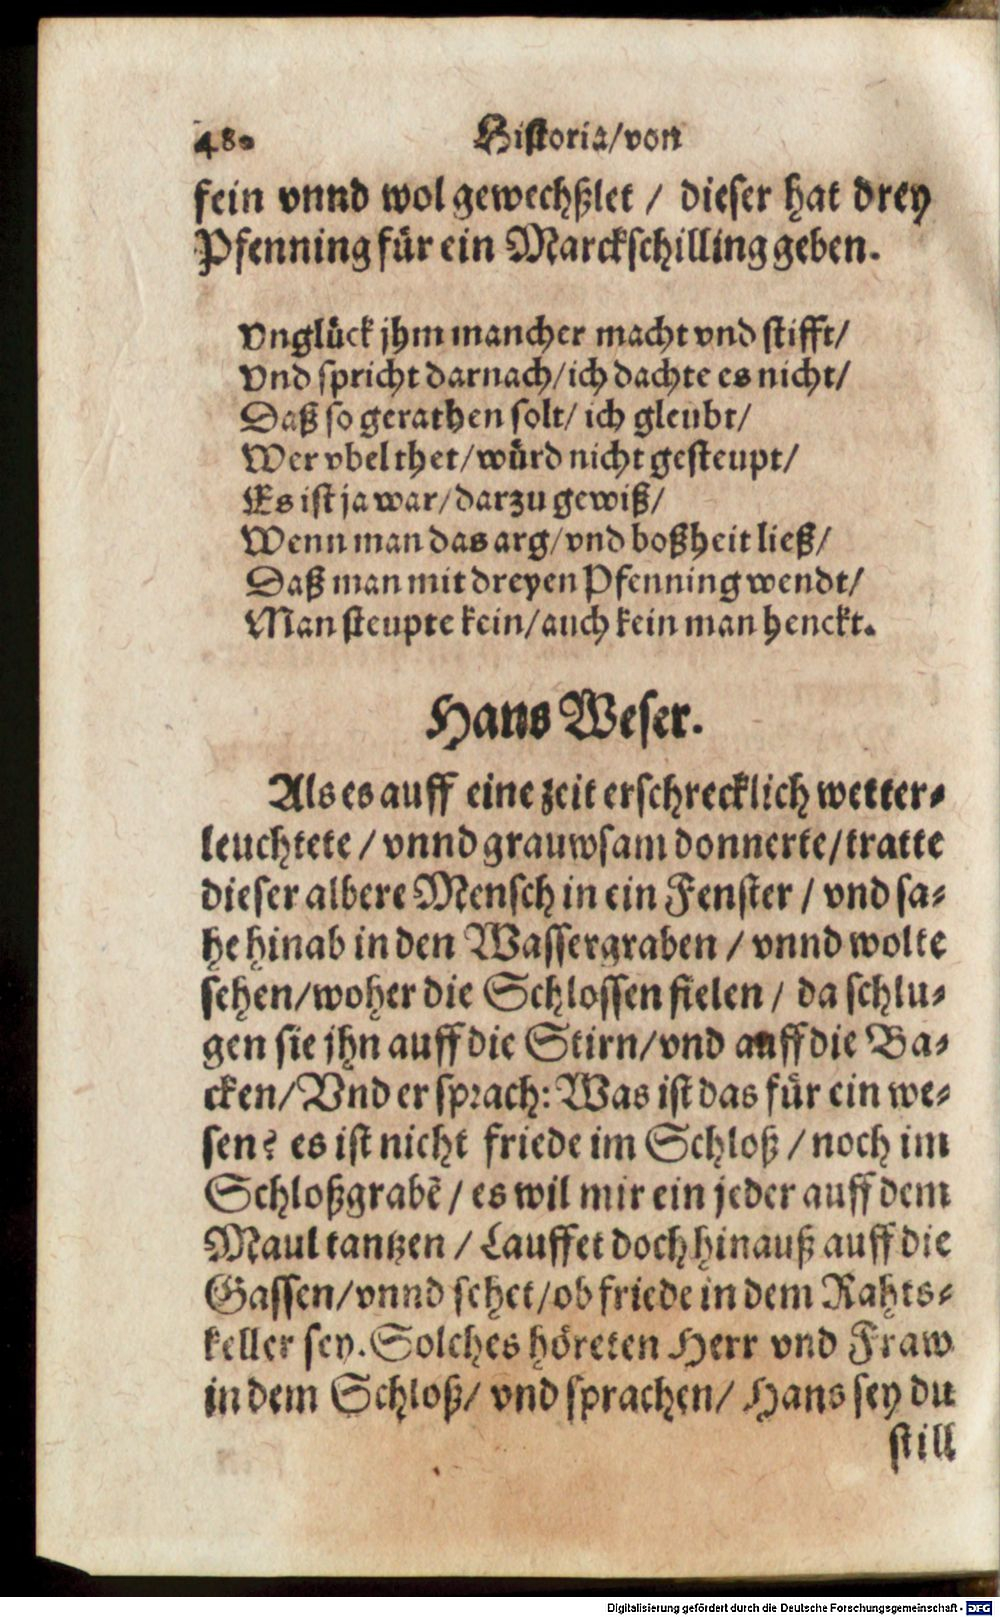 48. Historia/von
fein vnnd wol gewechßlet / dieser hat drey
Pfenning für ein Marckschilling geben.
Vnglück jhm mancher macht vnd stifft/
Vnd spricht darnach/ich dachte es nicht/
Daß so gerathen solt/ ich gleubt/
Wer vbel thet/würd nicht gesteupt/
Es ist ja war/darzu gewiß/
Wenn man das arg/vnd boßheit ließ/
Daß man mit dreyen Pfenning wendt/
Man steupte kein/auch kein man henckt.
Hans Weser.
Als es auff eine zeit erschrecklich wetter-
leuchtete / vnnd grauwsam donnerte/tratte
dieser albere Mensch in ein Fenster / vnd sa-
he hinab in den Wassergraben / vnnd wolte
sehen/woher die Schlossen fielen / da schlu-
gen sie jhn auff die Stirn/vnd auff die Ba-
cken/Vnd er sprach: Was ist das für ein we-
sen? es ist nicht friede im Schloß / noch im
Schloßgrabē / es wil mir ein jeder auff dem
Maul tantzen / Lauffet doch hinauß auff die
Gassen/vnnd sehet/ob friede in dem Rahts-
keller sey. Solches höreten Herr vnd Fraw
in dem Schloß/ vnd sprachen/ Hans sey du
still
Digitalisierung gefördert durch die Deutsche Forschungsgemeinschaft - DFG